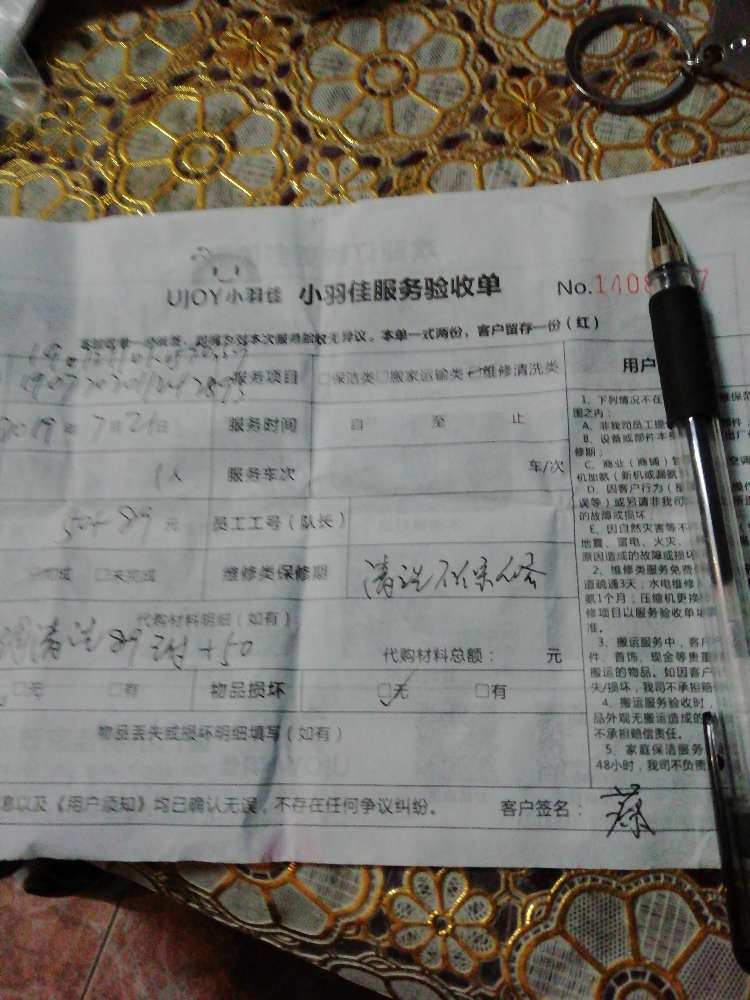 UJOY小羽佳 小羽佳服务验收单 No.1408
本次服务验收无异议。本单一式两份，客户留存一份（红）
服务项目 □保洁类 □搬家运输类 □维修清洗类
2019年7月21日 服务时间 自 至 止
1人 服务车次 车/次
50+89元 员工工号（队长）
□完成 □未完成 维修类保修期 清洗不保修
代购材料明细（如有）
清洗 89 +50 代购材料总额： 元
□无 □有 物品损坏 □无 □有
物品丢失或损坏明细填写（如有）
息以及《用户须知》均已确认无误，不存在任何争议纠纷。 客户签名：
用户
1、下列情况不在
围之内：
A、非我司员工
B、设备或部件本
修期；
C、商业（商铺）
机加氨（新机或漏氨
D、因客户行为
误等）或另请非我司
的故障或损坏；
E、因自然灾害等不
地震、雷电、火灾、
原因造成的故障或损坏
2、维修类服务免费
道疏通3天；水电维修
氨1个月；压缩机更换
修项目以服务验收单
准。
3、搬运服务中，客户
件、首饰、现金等贵重
搬运的物品。如因客户
失/损坏，我司不承担赔
4、搬运服务验收时，
品外观无搬运造成的
不承担赔偿责任。
5、家庭保洁服务
48小时，我司不负责